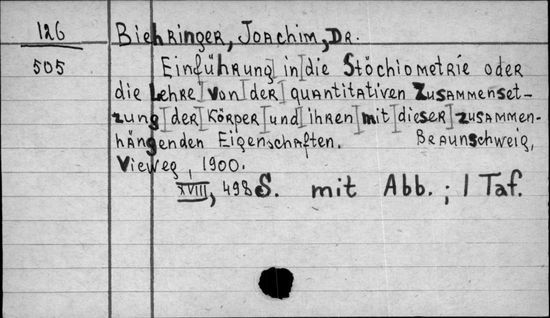 126 Biehringer, Joachim, Dr.
505 Einführung in die Stöchiometrie oder
die Lehre von der quantitativen Zusammenset-
zung der Körper und ihren mit dieser zusammen-
hängenden Eigenschaften. Braunschweig,
Vieweg, 1900.
XVIII, 498 S. mit Abb.; 1 Taf.